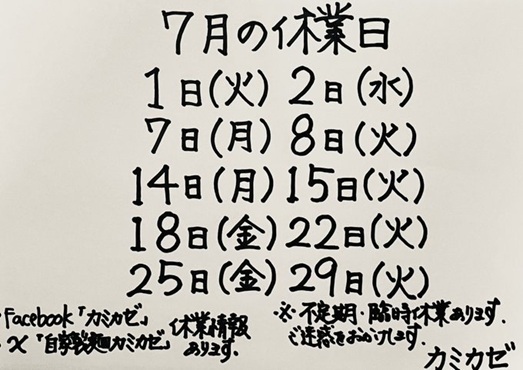 7月の休業日
1日(火) 2日(水)
7日(月) 8日(火)
14日(月) 15日(火)
18日(金) 22日(火)
25日(金) 29日(火)
・Facebook「カミカゼ」
・X「自家製麺カミカゼ」
休業情報
あります.
※不定期・臨時休業あります.
ご迷惑をおかけします.
カミカゼ